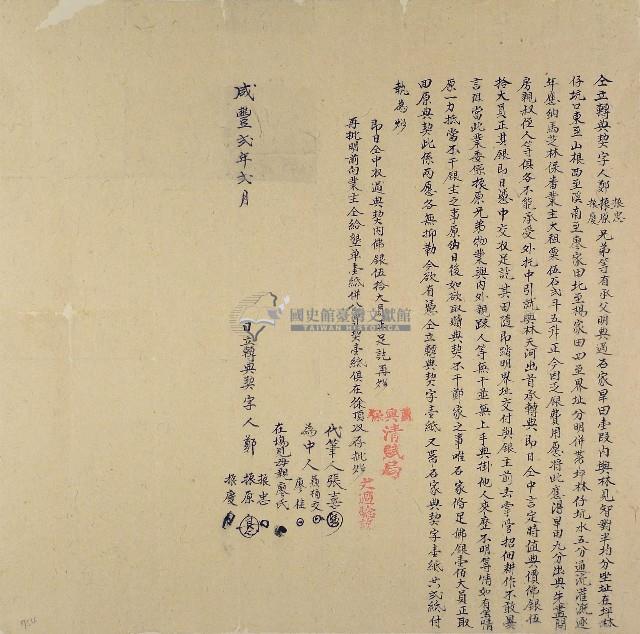 仝立轉典契字人鄭振忠振原振慶兄弟等有承父明典過石家旱田壹段內與林見智對半均分坐址在坪林
仔坑口東至山根西至溪南至廖家田北至楊家田四至界址分明併帶坪林仔坑水五分通流灌溉逐
年應納馬芝林保番業主大租粟伍石弍斗五升正今因乏銀費用愿將此應得旱田九分出典先盡問
房親叔侄人等俱各不能承受外托中引就與林天河出首承轉典即日仝中言定時值典價佛銀伍
拾大員正其銀即日憑中交收足訖其田隨即踏明界址交付與銀主前去掌管招佃耕作不敢異
言阻當此業委係振原兄弟物業與內外親疎人等無干並無上手典掛他人來歷不明等情如有等情
原一力抵當不干銀主之事原約日後如欲取贖典契不干鄭家之事唯石家備足佛銀壹佰大員正取
回原典契此係兩愿各無抑勒今欲有憑仝立轉典契字壹紙又帶石家典契字壹紙共弍紙付
執為炤
即日仝中收過典契內佛銀伍拾大員正足訖再炤
再批明前向業主仝給墾單壹紙併八卦契壹紙俱在徐頂收存批炤
代筆人張嘉
為中人
廖桂
在場見母親廖氏
咸豐弍年弍月 日立轉典契字人鄭振忠振原振慶
清賦局
國史館臺灣文獻館
TAIWAN HISTORICA